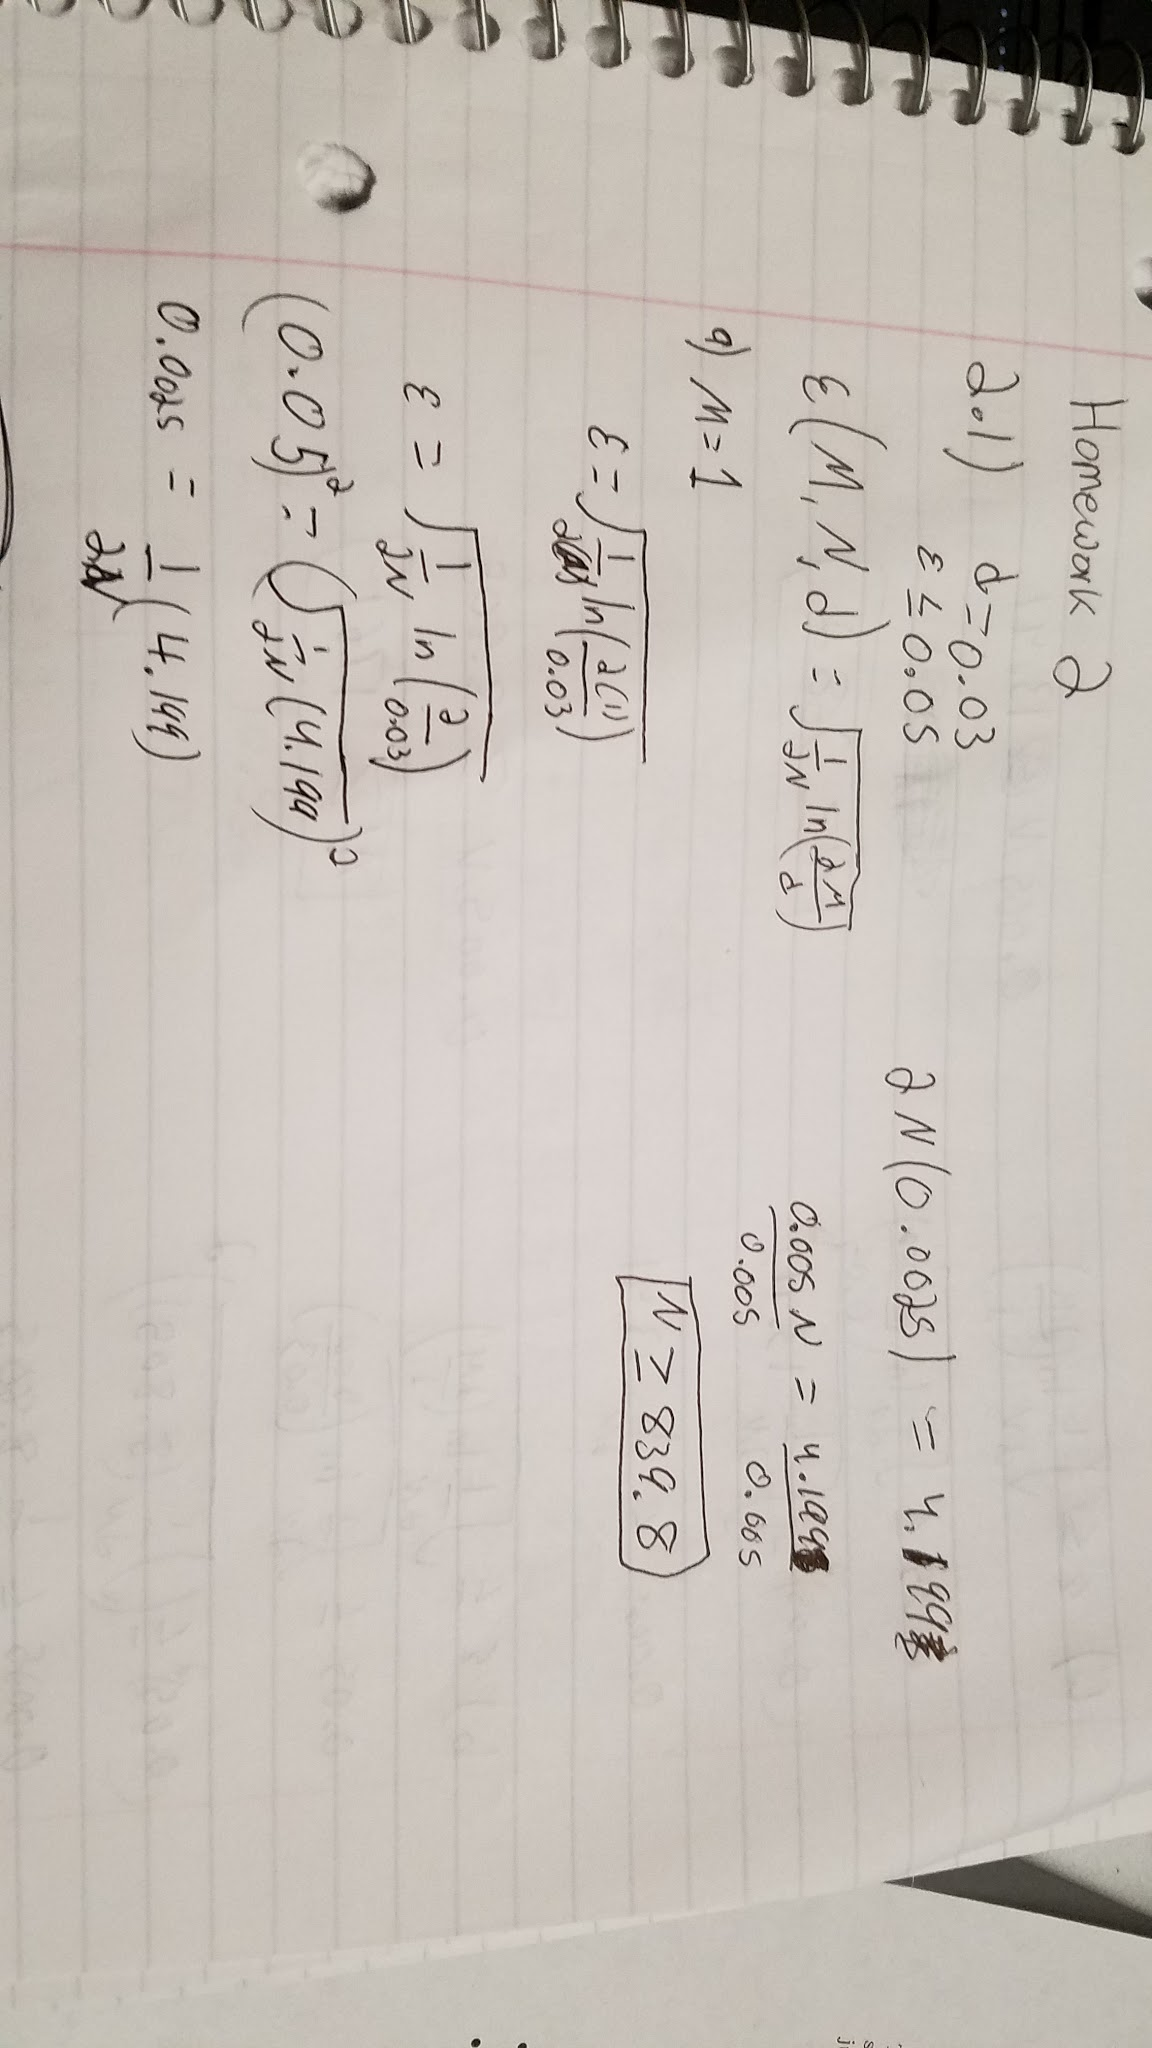 Homework 2
2.1) d=0.03
ε ≤ 0.05
ε(M, N, d) = √(1/2N ln(2M/d))
a) M=1
ε = √(1/2N ln(2(1)/0.03))
ε = √(1/2N ln(2/0.03))
(0.05)² = (√(1/2N (4.199))²
0.0025 = 1/2N (4.199)
2N(0.0025) = 4.199
0.005N = 4.199
0.005 0.005
N ≥ 839.8